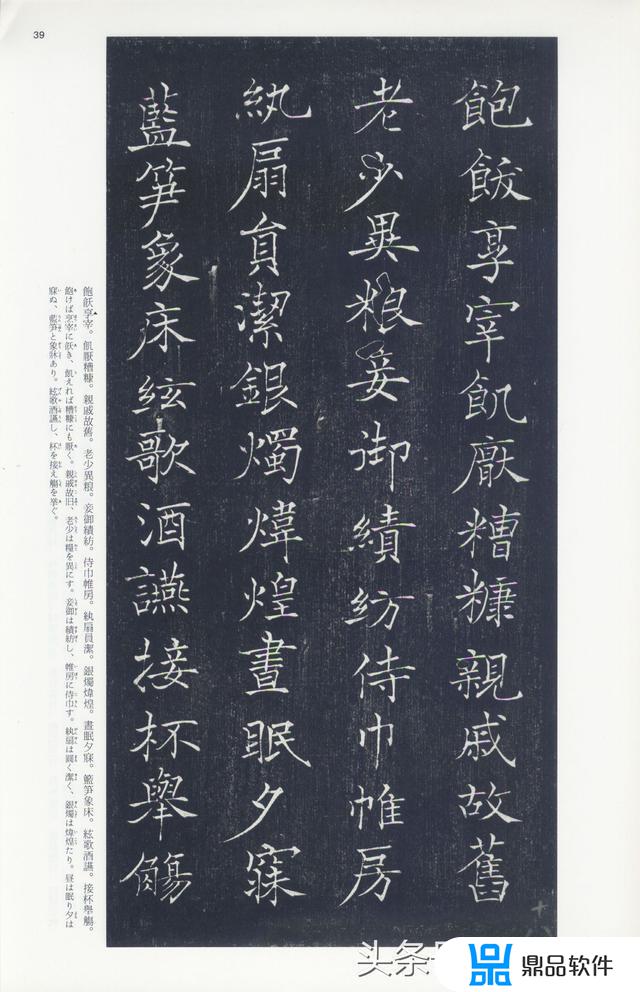 39
飽飫享宰飢厭糟糠親戚故舊
老少異粮妾御績紡侍巾帷房
紈扇員潔銀燭煒煌晝眠夕寐
藍笋象床絃歌酒讌接杯舉觴
十八
飽飫享宰。飢厭糟糠。親戚故舊。老少異粮。妾御績紡。侍巾帷房。紈扇員潔。銀燭煒煌。晝眠夕寐。籃笋象床。絃歌酒讌。接杯舉觴。
飽けば享宰に飫き、飢えれば糟糠にも厭く。親戚故旧、老少は糧を異にす。妾御は績紡し、帷房に侍巾す。紈扇は圓く潔く、銀燭は煒煌たり。昼は眠り夕は
寐ぬ、藍笋と象牀あり。絃歌酒讌し、杯を接え觴を挙ぐ。
头条
鼎品软件